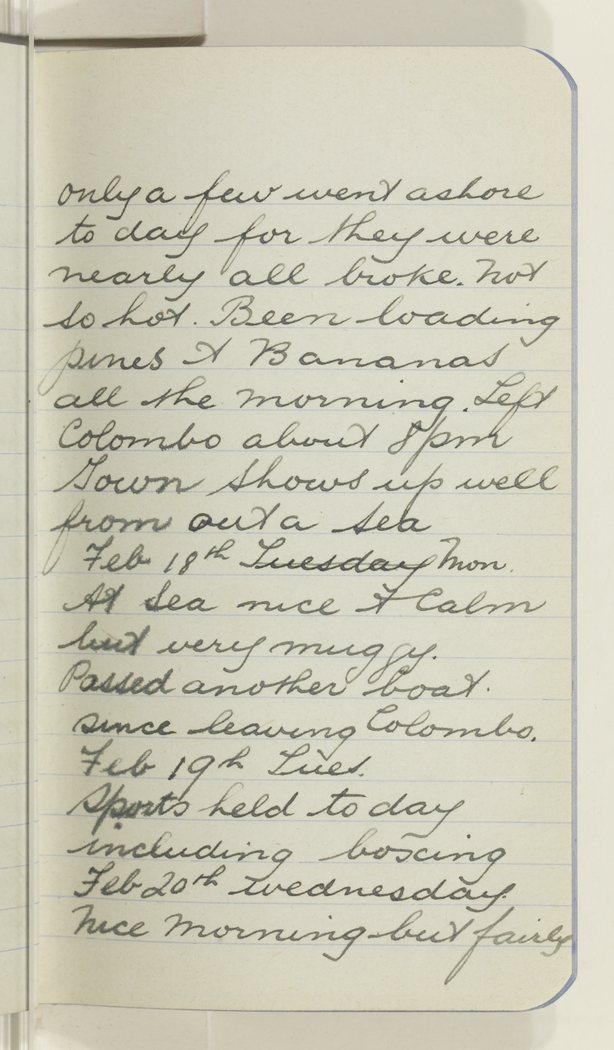 only a few went ashore
to day for they were
nearly all broke. Not
so hot. Been loading
pines & Bananas
all the morning. Left
Colombo about 8pm
Town shows up well
from out a sea
Feb 18th Tuesday Mon.
At Sea nice & Calm
but very muggy.
Passed another boat.
since leaving Colombo.
Feb 19h Tues.
Sports held to day
including boxing
Feb 20th Wednesday.
Nice morning but fairly